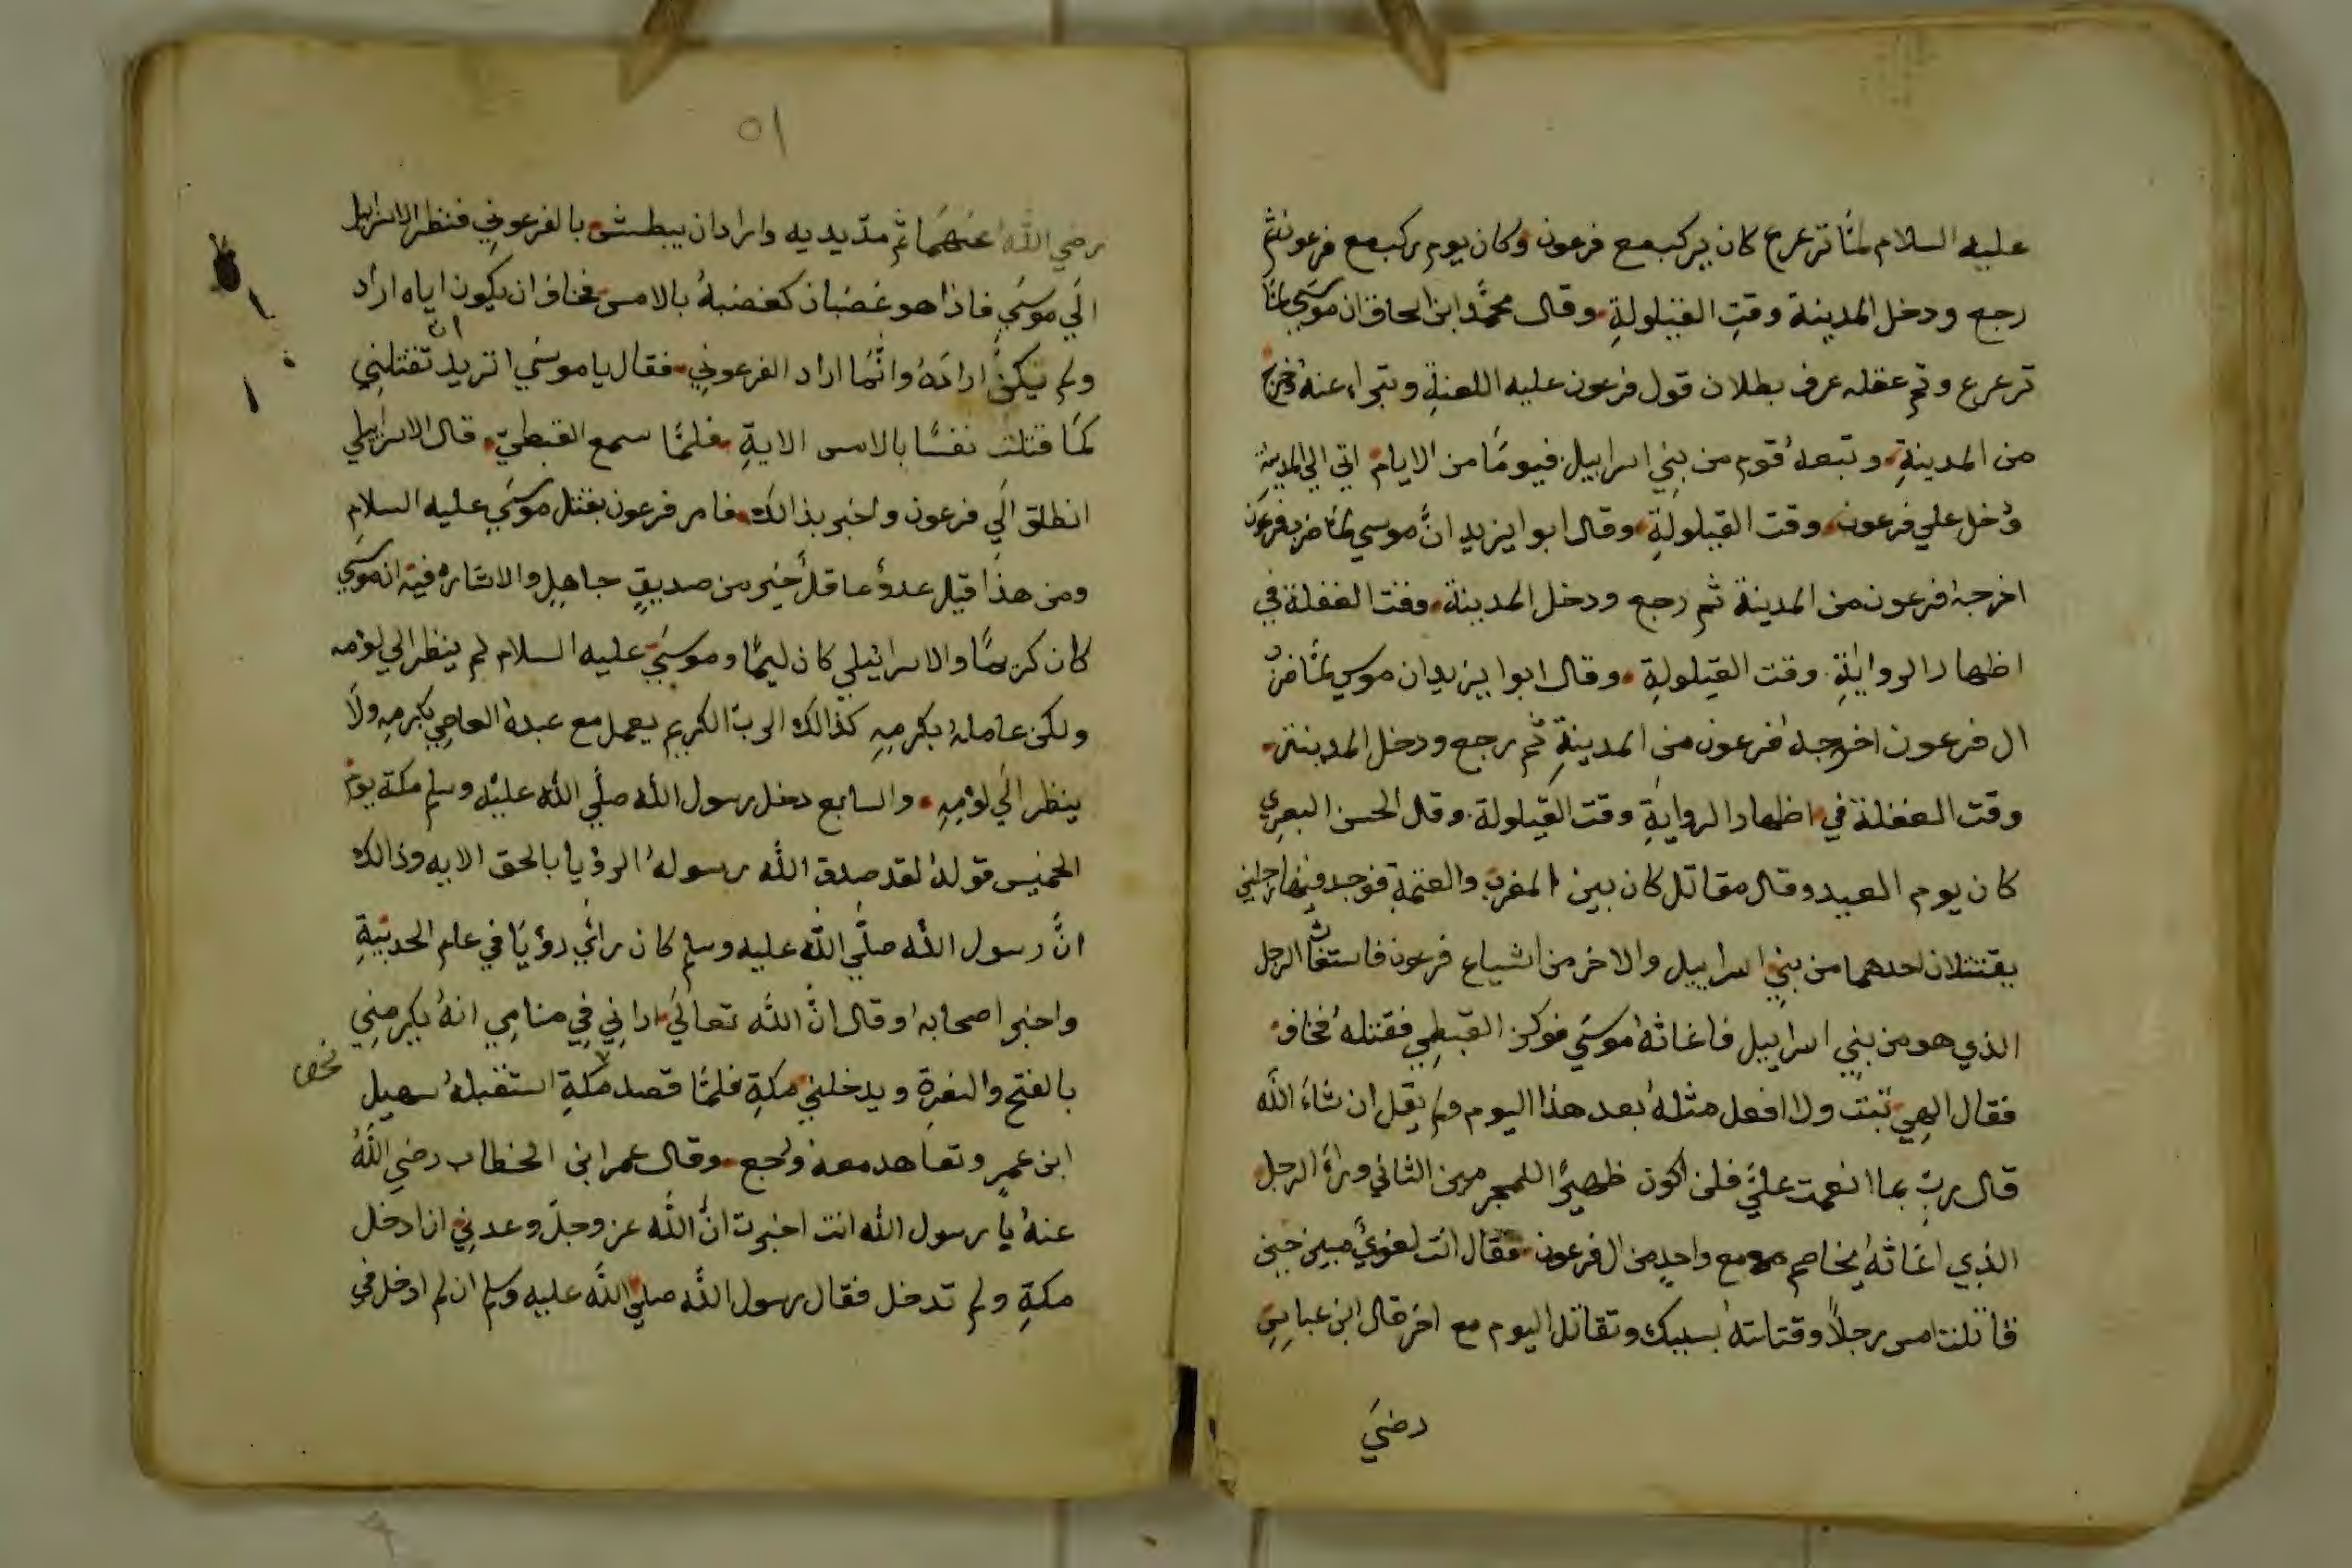 عليه السلام لمّا ترعرع كان يركب مع فرعون وكان يوم ركب مع فرعون ثم
رجع ودخل المدينة وقت القيلولة وقال محمّد ابن اسحاق ان موسي لمّا
ترعرع وتم عقله عرف بطلان قول فرعون عليه اللعنة وتبراء عنه فخرج
من المدينة وتبعه قوم من بني اسراييل فيومًا من الايام اتي الي المدينة
ودخل علي فرعون وقت القيلولة وقال ابوا يزيد انّ موسي لمّا ضرب فرعون
اخرجه فرعون من المدينة ثم رجع ودخل المدينة وقت الغفلة في
اظهار الرواية وقت القيلولة وقال ابوا يزيد ان موسي لمّا
ال فرعون اخرجه فرعون من المدينة ثم رجع ودخل المدينة
وقت الغفلة في اظهار الرواية وقت القيلولة وقال الحسن البصري
كان يوم العيد وقال مقاتل كان بين المغرب والعتمة فوجد فيها رجلين
يقتتلان احدهما من بني اسراييل والاخر من اشياع فرعون فاستغاث الرجل
الذي هو من بني اسراييل فاغاثه موسي فوكز القبطي فقتله فخاف
فقال الهي تبت ولا افعل مثله بعد هذا اليوم ولم يقل ان شاء الله
قال رب بما انعمت عليّ فلن اكون ظهيرًا للمجرمين الثاني وراء الرجل
الذي اغاثه يخاصم مع واحدٍ من ال فرعون فقال انت لغويٌ مبين حين
قاتلت امس رجلاً وقتلته بسببك وتقاتل اليوم مع اخر قال ابن عباس
رضي
٥١
رضي الله عنهما ثم مدّ يديه واراد ان يبطش بالفرعوني فنظر الاسراييلي
الي موسي فاذا هو غضبان كغضبه بالامس فخاف ان يكون اياه اراد
ولم يكن اراده وانّما اراد الفرعوني فقال يا موسي اتريد ان تقتلني
كما قتلت نفسًا بالامس الاية فلمّا سمع القبطي قال الاسراييلي
انطلق الي فرعون واخبر بذالك فامر فرعون بقتل موسي عليه السلام
ومن هذا قيل عدوٌ عاقلٌ خير من صديقٍ جاهلٍ والاشاره فيه انه موسي
كان كريمًا والاسرائيلي كان ليمًا وموسي عليه السلام لم ينظر الي لؤمه
ولكن عامله بكرمه كذالك الرب الكريم يعمل مع عبده العاصي بكرمه ولا
ينظر الي لؤمه والسابع دخل رسول الله صلّي الله عليه وسلم مكة يوم
الخميس قوله لقد صدق الله رسوله الرؤيا بالحق الايه وذالك
انّ رسول الله صلّي الله عليه وسلم كان رائي رؤيًا في عام الحديبية
واخبر اصحابه وقال انّ الله تعالي اراني في منامي انه يكرمني
بالفتح والنصرة ويدخلني مكة فلمّا قصد مكة استقبله سهيل
ابن عمرٍ وتعاهد معه ورجع وقال عمر ابن الخطاب رضي الله
عنه يا رسول الله انت اخبرت انّ الله عز وجلّ وعدني ان ادخل
مكة ولم تدخل فقال رسول الله صلي الله عليه وسلم ان لم ادخل في